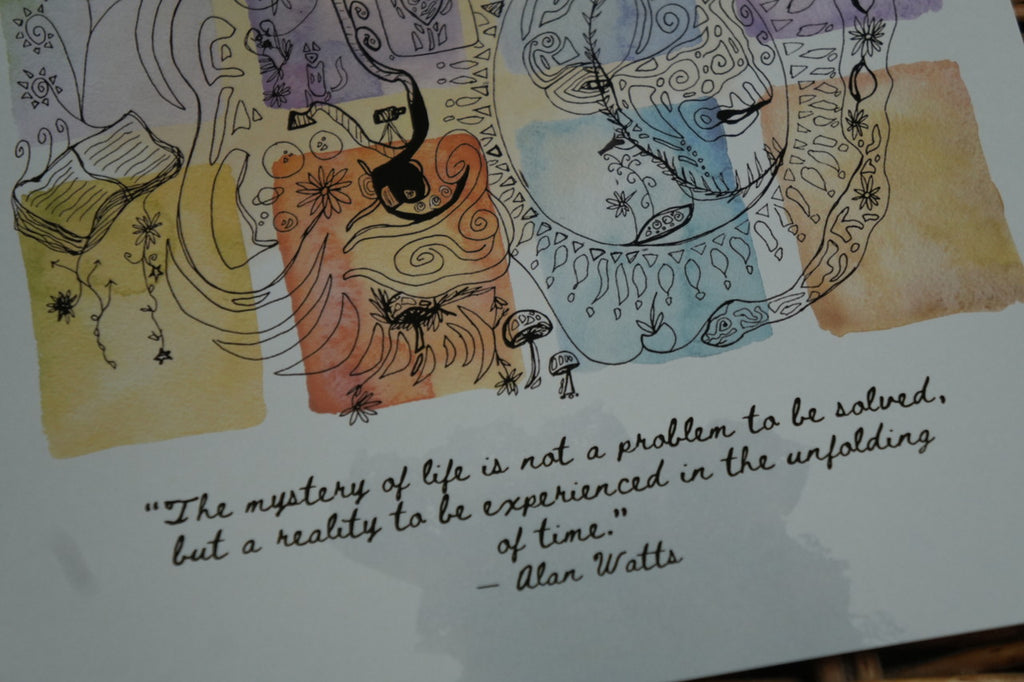 "The mystery of life is not a problem to be solved,
but a reality to be experienced in the unfolding
of time."
— Alan Watts